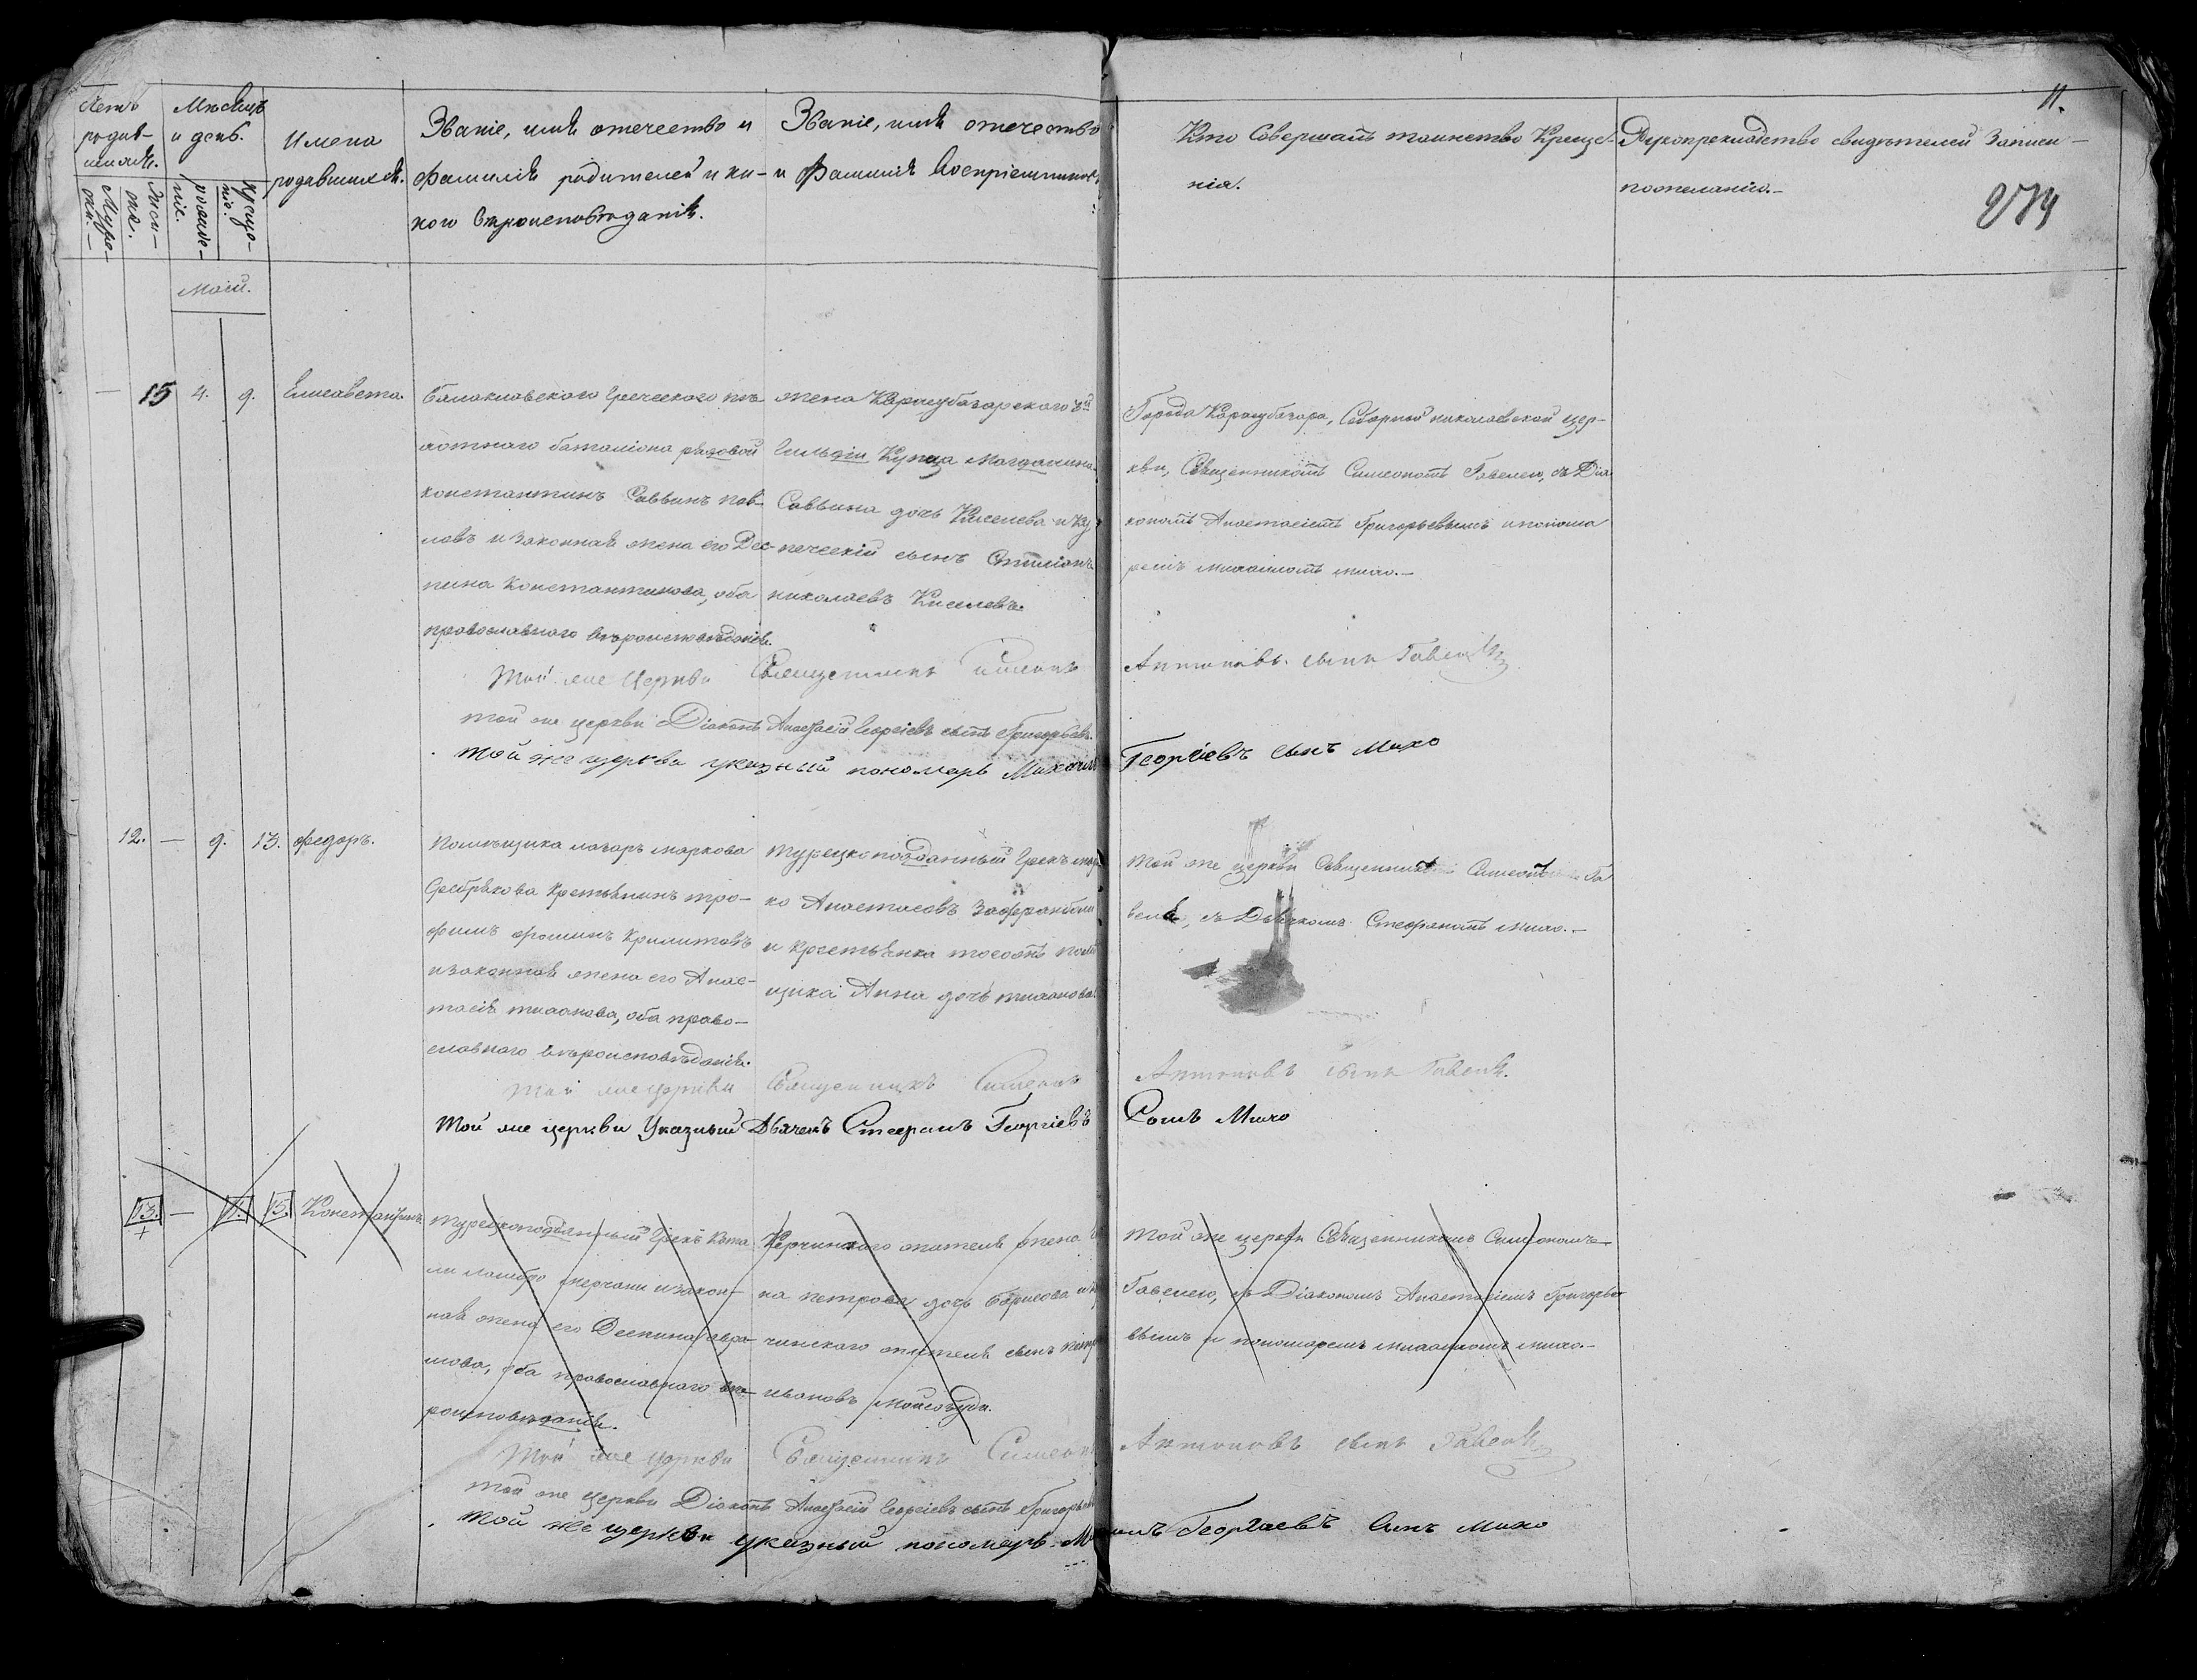 11.
274
Счетъ родив-шихся.
Мѣсяцъ и день.
Имена родившихся.
Званіе, имя отечество и фамилія родителей и ка-кого вѣроисповѣданія.
Званіе, имя отечество и фамилія воспріемниковъ
Кто совершалъ таинство Креще-нія.
Рукоприкладство свидѣтелей записи по желанію.
Муже-ска.
Женска.
рожде-ніе.
Креще-ніе.
Маій.
— 15 4. 9. Елисавета.
Балаклавскаго Греческаго пѣ-
хотнаго баталіона рядовой
Константинъ Саввинъ Пав-
ловъ и законная жена его Дес-
пина Константинова, оба
православнаго вѣроисповѣданія.
жена Карасубазарскаго 3й
Гильдіи Купца Магдалина
Саввина дочь Киселева и Ку-
печескій сынъ Стиліанъ
Николаевъ Киселевъ
Города Карасубазара, Соборной Николаевской цер-
кви, Священникомъ Симеономъ Гавелею, съ Діа
кономъ Анастасіемъ Григорьевымъ и понома
ремъ Михаиломъ Михо.—
Той же Церкви Священникъ Симеонъ Антоновъ сынъ Гавеля
той же церкви Діаконъ Анастасій Георгіевъ сынъ Григорьевъ.
той же церкви указный пономарь Михаилъ Георгіевъ сынъ Михо
12. — 9. 13. Федоръ.
Помѣщика Лазаръ Маркова
Серебрякова Крестьянинъ Тро-
фимъ Фоминъ
и законная жена его Анас-
тасія, оба право-
славнаго вѣроисповѣданія.
Турецкоподданный Грекъ
ко Анастасовъ
и крестьянка тогожъ помѣ
щика Анна дочь
Той же церкви Священникъ Симеонъ Га
веля, съ Дьячкомъ Стефаномъ Михо.—
Той же церкви Священникъ Симеонъ Антоновъ сынъ Гавеля.
Той же церкви Указный Дьячекъ Стефанъ Георгіевъ Сынъ Михо
13. — 11. 15. Константинъ.
Турецкоподданный Грекъ
и закон-
ная жена его Деспина
оба православнаго вѣ-
роисповѣданія.
Керчинскаго жителя жена
на Петрова дочь Борисова и
чинскаго жителя сынъ
Ивановъ
Той же церкви Священникомъ Симеономъ
Гавелею, съ Діакономъ Анастасіемъ Григорье
вымъ и пономаремъ Михаиломъ Михо.—
Той же церкви Священникъ Симеонъ Антоновъ сынъ Гавеля
той же церкви Діаконъ Анастасій Георгіевъ сынъ Григорьевъ
той же церкви указный пономарь Михаилъ Георгіевъ сынъ Михо